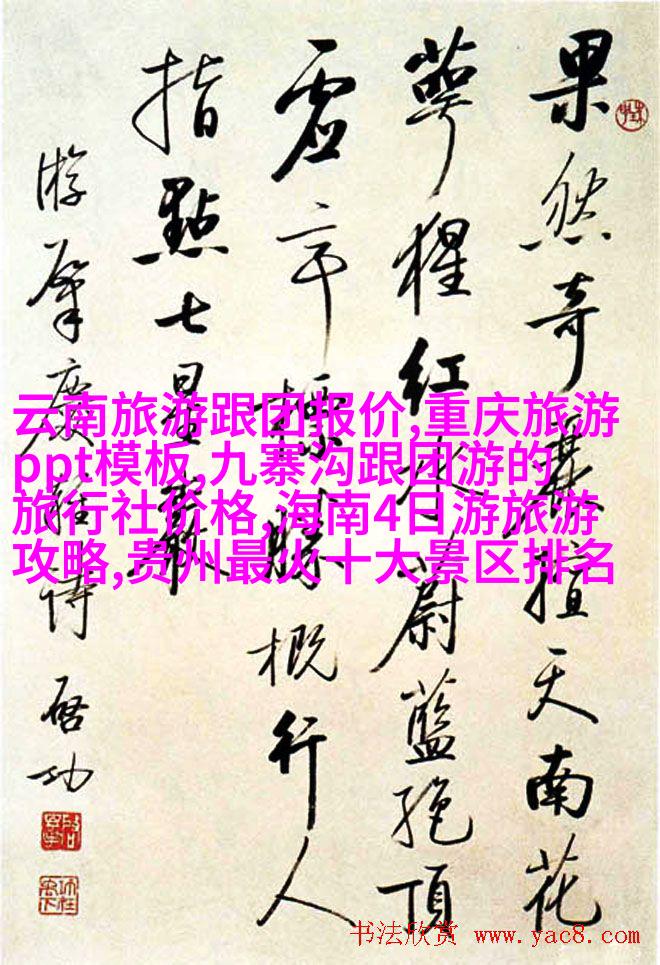 果然奇擅天南花
萼猩紅水蔚藍絕頂
虛亭標勝概行人
指點七星巖
游肇慶詩 啓功
云南旅游跟团报价,重庆旅游
ppt模板,九寨沟跟团游的
旅行社价格,海南4日游旅游
攻略,贵州最火十大景区排名
书法欣赏 www.yac8.com